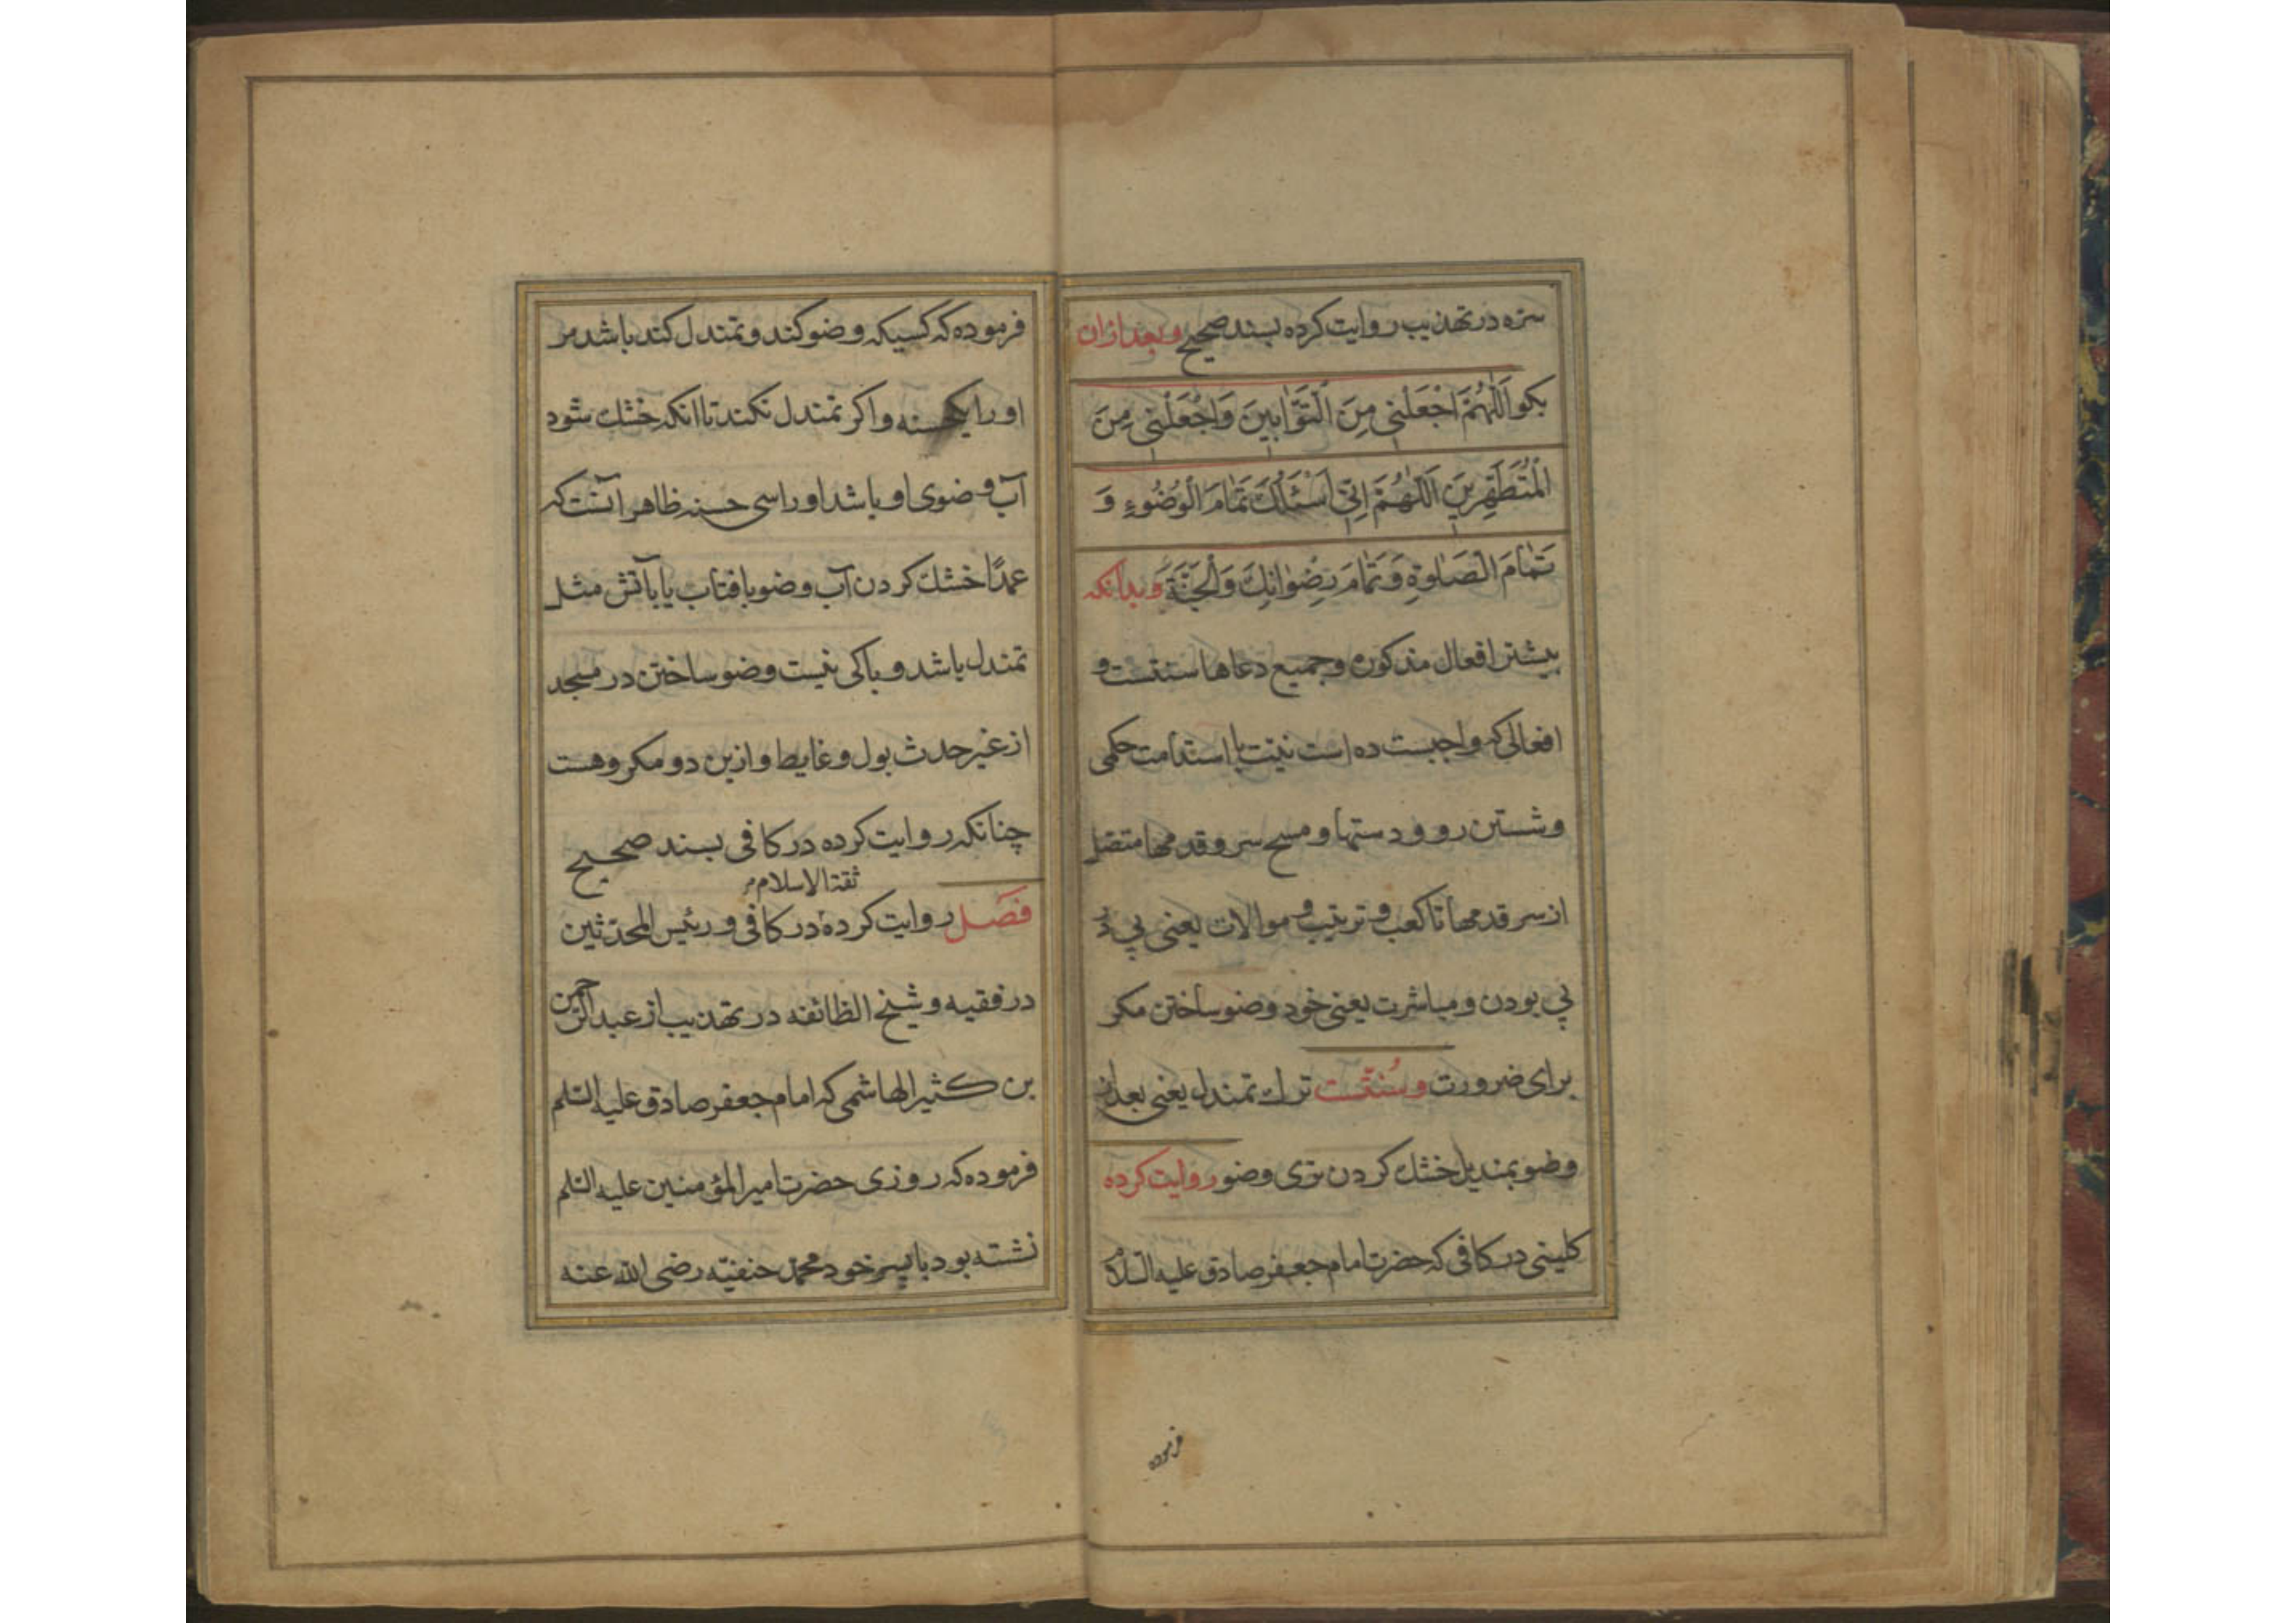 سره در تهذیب روایت کرده بسند صحیح و بعد ازان
بکو اَللّٰهُمَّ اجْعَلْنِی مِنَ التَّوّٰابِینَ وَاجْعَلْنِی مِنَ
الْمُتَطَهِّرِینَ اَللّٰهُمَّ اِنِّی اَسْئَلُکَ تَمٰامَ الْوُضُوءِ وَ
تَمٰامَ الصَّلٰوةِ وَ تَمٰامَ رِضْوٰانِکَ وَالْجَنَّةَ و بدانکه
بیشتر افعال مذکوره و جمیع دعاها سنتست و
افعالی که واجبست ده است نیت با استدامت حکمی
و شستن رو و دستها و مسح سر و قدمها متصل
از سر قدمها تا کعب و ترتیب و موالات یعنی پی در
پی بودن و مباشرت یعنی خود وضو ساختن مکر
برای ضرورت و سُنّتست ترك تمندل یعنی بعد از
وضو بمندیل خشك کردن تری وضو روایت کرده
کلینی در کافی که حضرت امام جعفر صادق علیه السلام
فرموده
فرموده که کسیکه وضو کند و تمندل کند باشد مر
او را یکحسنه و اکر تمندل نکند تا انکه خشك شود
آب وضوی او باشد او را سی حسنه ظاهر آنست که
عمدًا خشك کردن آب وضو بافتاب یا بآتش مثل
تمندل باشد و باکی نیست وضو ساختن در مسجد
از غیر حدث بول و غایط و ازین دو مکروهست
چنانکه روایت کرده در کافی بسند صحیح
ثقة الاسلام
فصل روایت کرده در کافی و رئیس المحدّثین
در فقیه و شیخ الطائفه در تهذیب از عبدالرحمن
بن کثیر الهاشمی که امام جعفر صادق علیه السلم
فرموده که روزی حضرت امیر المؤمنین علیه السلم
نشته بود با پسر خود محمّد حنفیّه رضی الله عنه